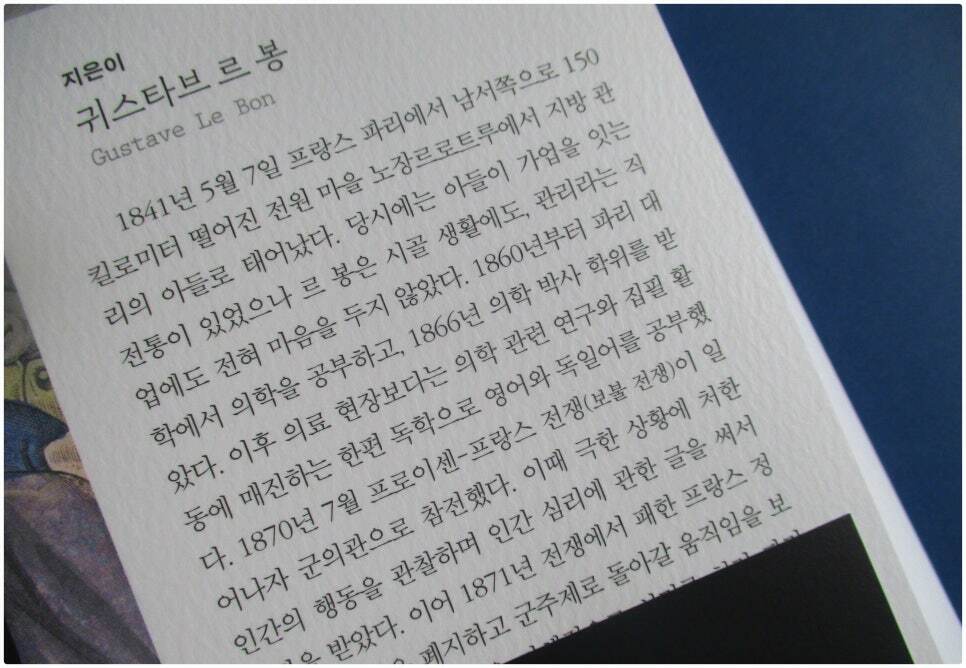 지은이
귀스타브 르 봉
Gustave Le Bon
1841년 5월 7일 프랑스 파리에서 남서쪽으로 150
킬로미터 떨어진 전원 마을 노장르로트루에서 지방 관
리의 아들로 태어났다. 당시에는 아들이 가업을 잇는
전통이 있었으나 르 봉은 시골 생활에도, 관리라는 직
업에도 전혀 마음을 두지 않았다. 1860년부터 파리 대
학에서 의학을 공부하고, 1866년 의학 박사 학위를 받
았다. 이후 의료 현장보다는 의학 관련 연구와 집필 활
동에 매진하는 한편 독학으로 영어와 독일어를 공부했
다. 1870년 7월 프로이센-프랑스 전쟁(보불 전쟁)이 일
어나자 군의관으로 참전했다. 이때 극한 상황에 처한
인간의 행동을 관찰하며 인간 심리에 관한 글을 써서
받았다. 이어 1871년 전쟁에서 패한 프랑스 정
폐지하고 군주제로 돌아갈 움직임을 보